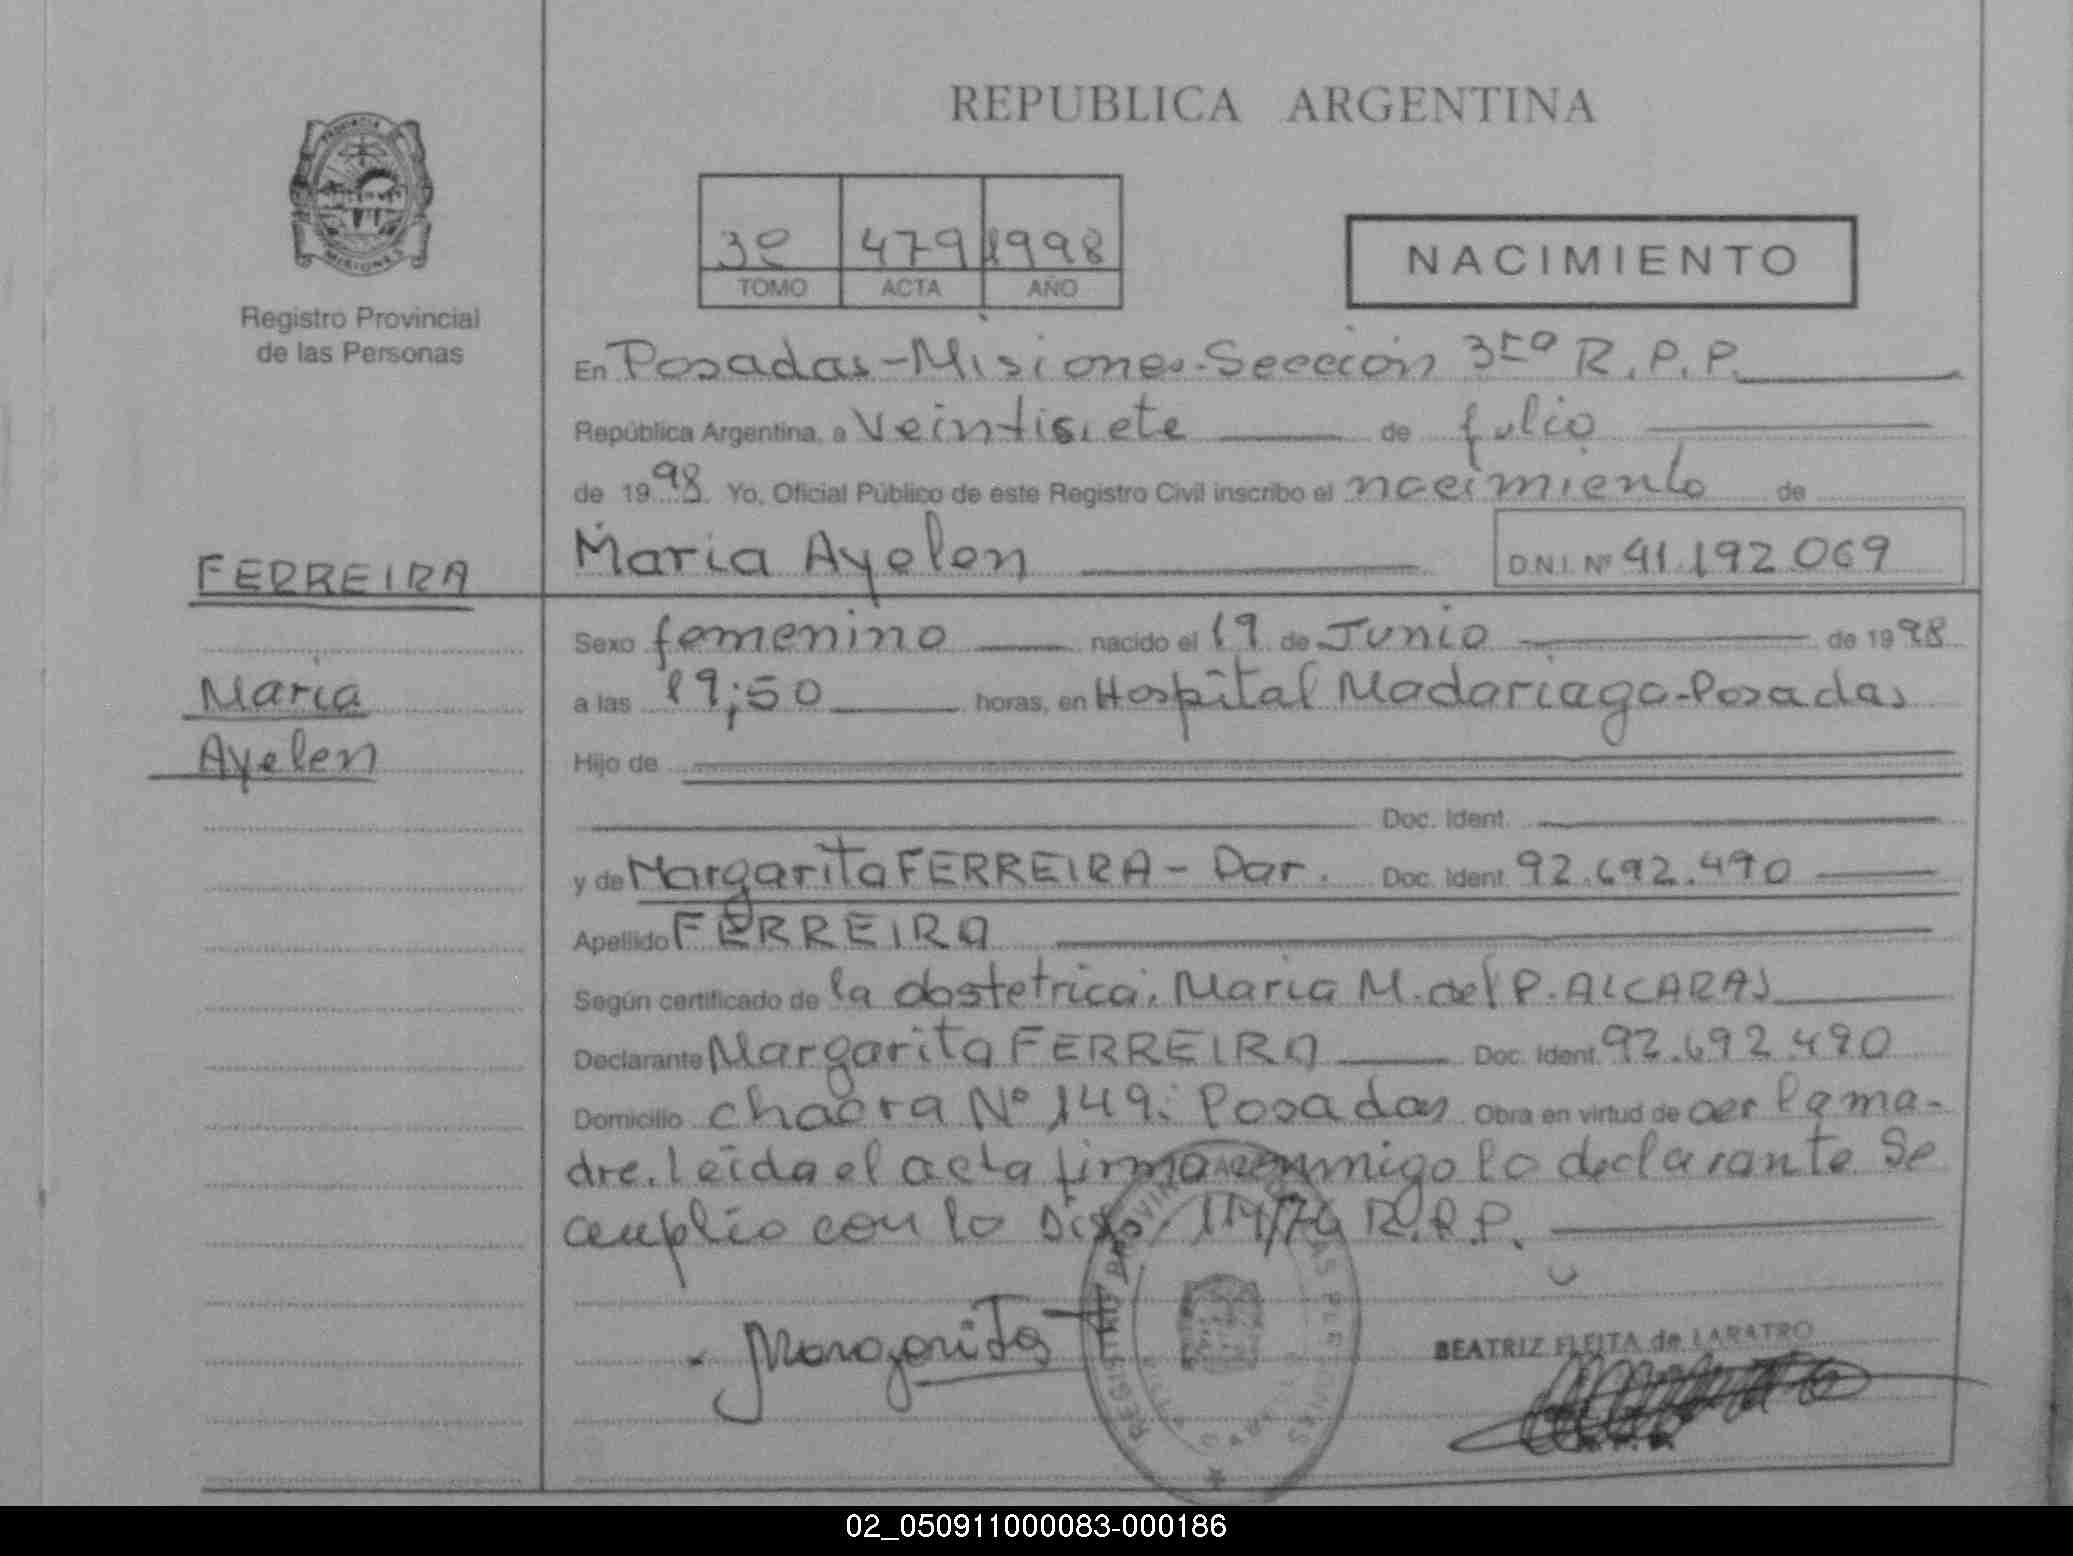 REPUBLICA ARGENTINA
PROVINCIA DE
MISIONES
Registro Provincial
de las Personas
3º 479 1998
TOMO ACTA AÑO
NACIMIENTO
En Posadas-Misiones-Sección 3ra R.P.P.
República Argentina, a Veintisiete de Julio
de 1998 Yo, Oficial Público de este Registro Civil inscribo el nacimiento de
María Ayelen D.N.I. Nº 41.192.069
FERREIRA
María
Ayelen
Sexo femenino nacido el 19 de Junio de 1998
a las 19;50 horas, en Hospital Madariaga-Posadas
Hijo de
Doc. Ident.
y de Margarita FERREIRA - Dar. Doc. Ident. 92.692.490
Apellido FERREIRA
Según certificado de la obstetrica, María M. del P. ALCARAS
Declarante Margarita FERREIRA Doc. Ident. 92.692.490
Domicilio chacra Nº 149. Posadas Obra en virtud de ser la ma-
dre. Leída el acta firma conmigo la declarante Se
cumplio con la Disp. 114/74 R.P.P.
Margarita
BEATRIZ FLEITA de LARATRO
02_050911000083-000186